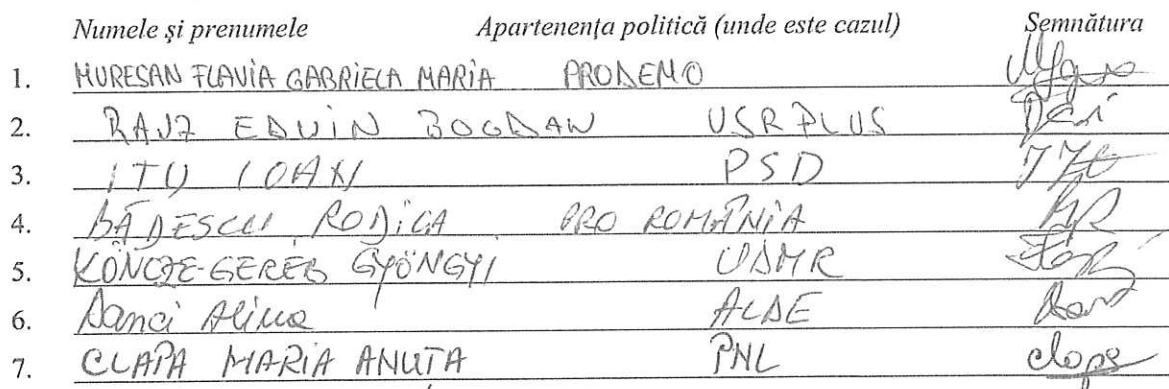 Numele și prenumele Apartenența politică (unde este cazul) Semnătura
1. MURESAN FLAVIA GABRIELA MARIA PRODEMO
2. RAJZ EDUIN BOGDAN USR PLUS
3. ITU IOAN PSD
4. BĂDESCU RODICA PRO ROMÂNIA
5. KÖNCZE-GEREB GYÖNGYI UDMR
6. Danci Alina ALDE
7. CLAPA MARIA ANUTA PNL clapa